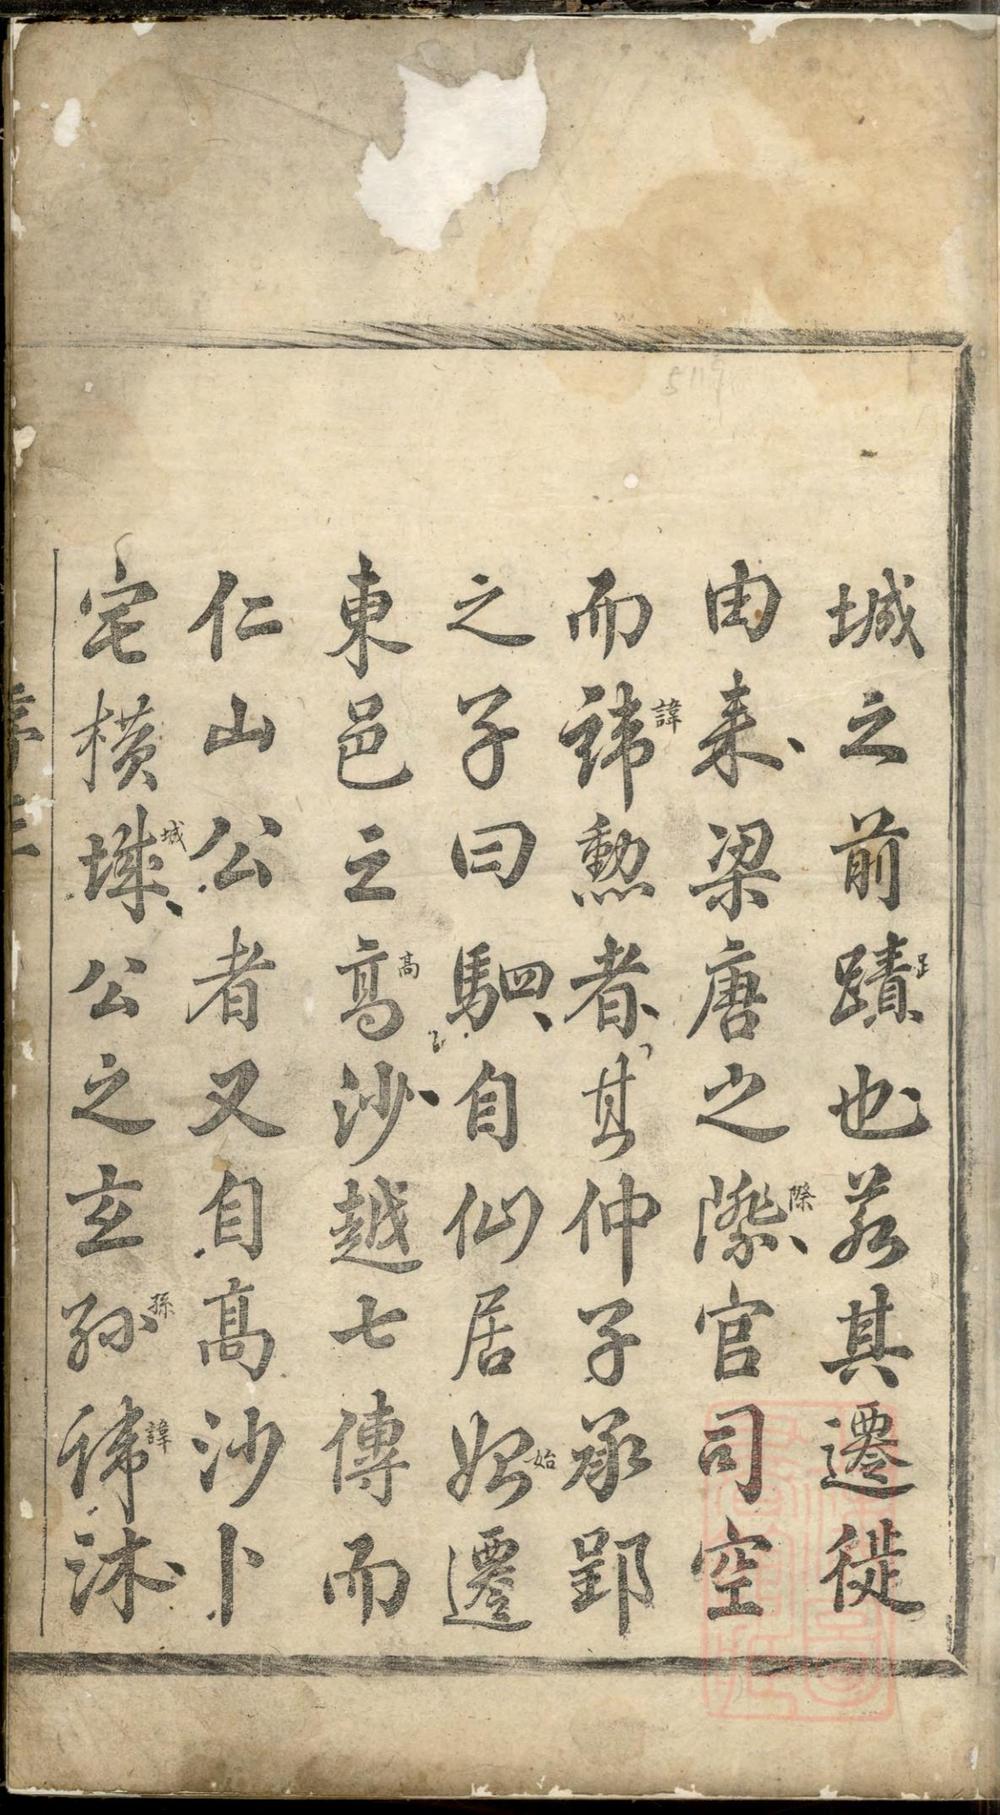 城之前蹟也若其遷徙
由来梁唐之際官司空
而諱勲者其仲子承郢
之子曰駟自仙居始遷
東邑之高沙越七傳而
仁山公公者又自高沙卜
宅橫城公之玄孫諱沐